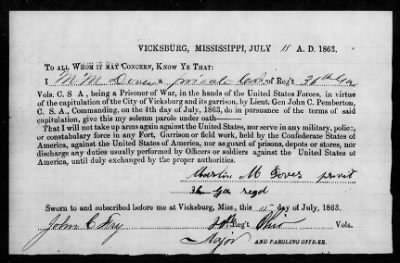 VICKSBURG, MISSISSIPPI, JULY 11 A. D. 1863.
TO ALL WHOM IT MAY CONCERN, KNOW YE THAT:
I M. M. private Co of Reg't 36th Ga
Vols. C. S. A., being a Prisoner of War, in the hands of the United States Forces, in virtue
of the capitulation of the City of Vicksburg and its garrison, by Lieut. Gen John C. Pemberton,
C. S. A., Commanding, on the 4th day of July, 1863, do in pursuance of the terms of said
capitulation, give this my solemn parole under oath——
That I will not take up arms again against the United States, nor serve in any military, police,
or constabulary force in any Fort, Garrison or field work, held by the Confederate States of
America, against the United States of America, nor as guard of prisons, depots or stores, nor
discharge any duties usually performed by Officers or soldiers against the United States of
America, until duly exchanged by the proper authorities.
M privat
36 Ga regd
Sworn to and subscribed before me at Vicksburg, Miss., this day of July, 1863.
John C Fry 20th Reg't Ohio Vols.
Major AND PAROLING OFFICER.